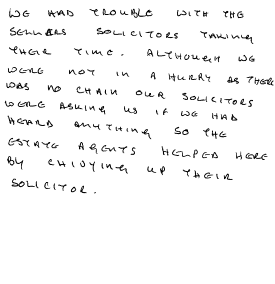 WE HAD TROUBLE WITH THE
SELLERS SOLICITORS TAKING
THEIR TIME. ALTHOUGH WE
WERE NOT IN A HURRY AS THERE
WAS NO CHAIN OUR SOLICITORS
WERE ASKING US IF WE HAD
HEARD ANYTHING SO THE
ESTATE AGENTS HELPED HERE
BY CHIVYING UP THEIR
SOLICITOR.